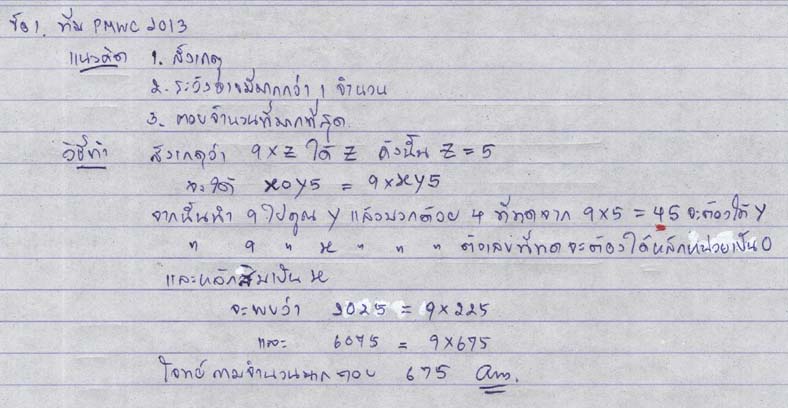 ข้อ 1. ทีม PMWC 2013
แนวคิด 1. สังเกต
2. ระวังอาจมีมากกว่า 1 จำนวน
3. ตอบจำนวนที่มากที่สุด
วิธีทำ สังเกตว่า 9 × Z ได้ Z ดังนั้น Z = 5
จะได้ x0y5 = 9 × xy5
จากนั้นนำ 9 ไปคูณ y แล้วบวกด้วย 4 ที่ทดจาก 9 × 5 = 45 จะต้องได้ y
" 9 " x " " " ตัวเลขที่ทด จะต้องได้หลักหน่วยเป็น 0
และหลักสิบเป็น x
จะพบว่า 2025 = 9 × 225
และ 6075 = 9 × 675
โจทย์ถามจำนวนมาก ตอบ 675 Ans.